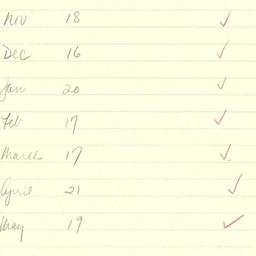 Nov 18 ✓
Dec 16 ✓
Jan 20 ✓
Feb 17 ✓
March 17 ✓
April 21 ✓
May 19 ✓